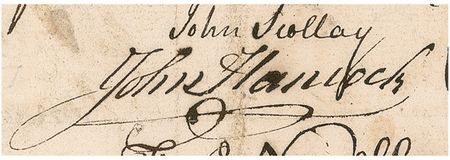 John Scollay
John Hancock